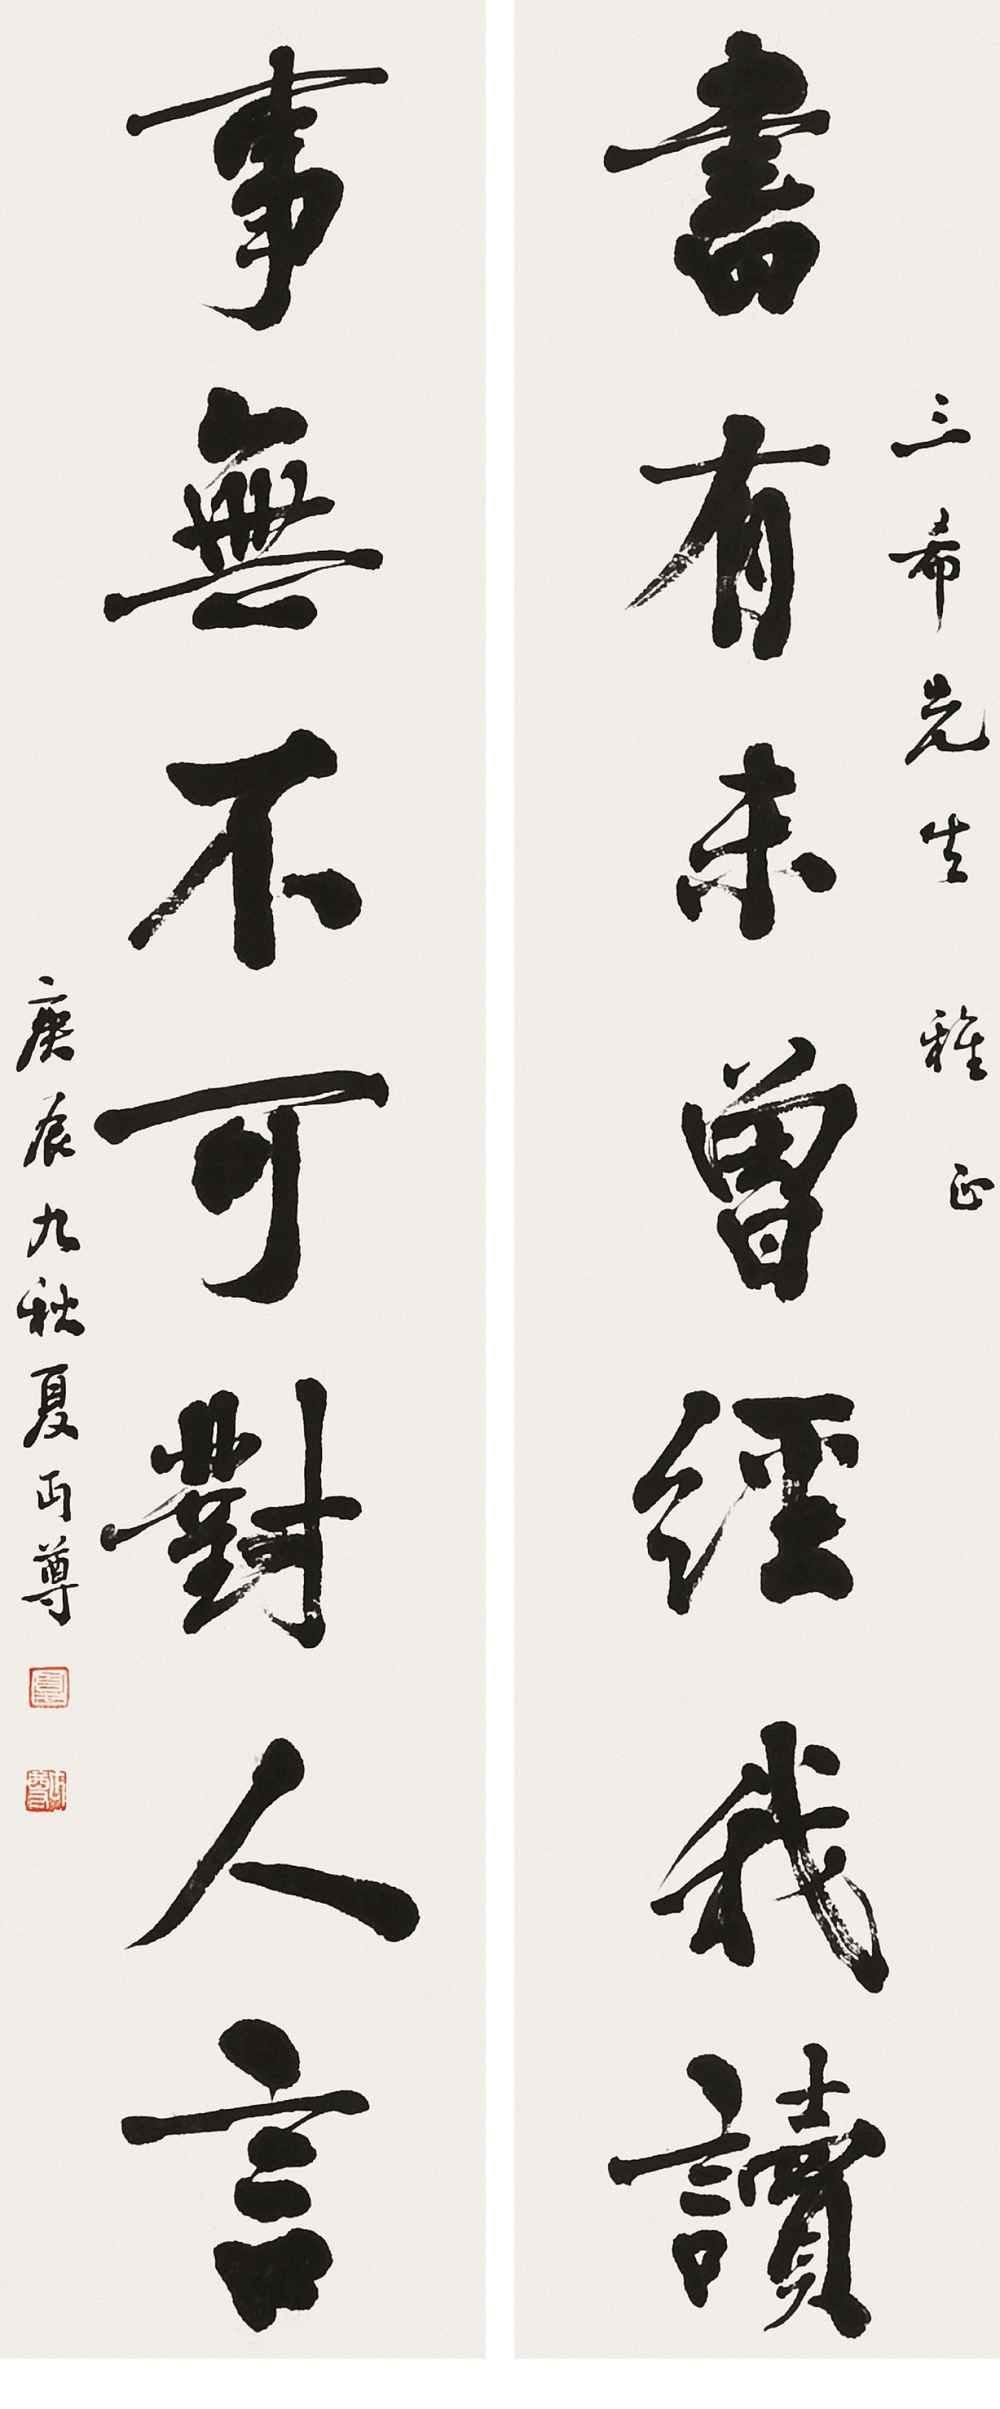 三希先生 雅正
書有未曾經我讀
事無不可對人言
庚辰九秋夏丏尊